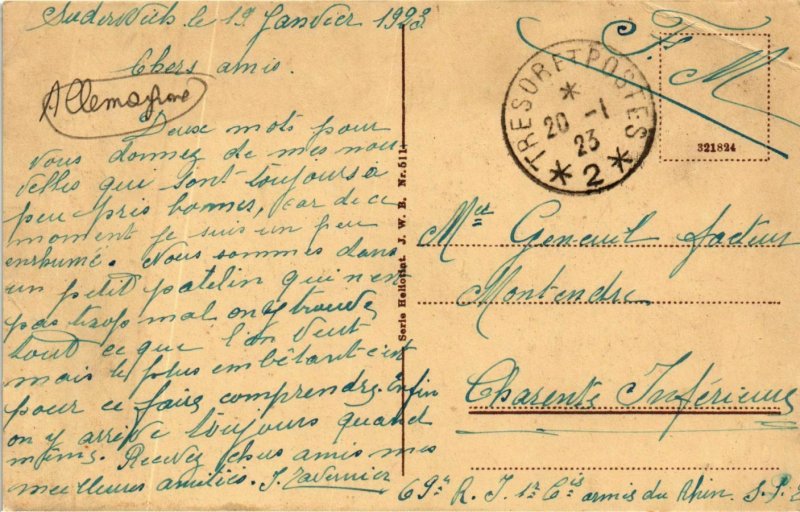 Suderwich le 19 Janvier 1923
Chers amis
Allemagne
Deux mots pour
vous donnez de mes nou
velles qui sont toujours à
peu près bonnes, car de ce
moment je suis un peu
enrhumé. Nous sommes dans
un petit patelin qui n'en
pas trop mal on y trouve
tout ce que l'on veut
mais le plus embêtant c'est
pour ce faire comprendre. Enfin
on y arrive toujours quand
même. Recevez chers amis mes
meilleures amitiés. J. Tavernier
Serie Heliotint J. W. B. Nr. 511.
TRESOR ET POSTES
20 - 1
23
* 2 *
F. M
321824
Geneuil facteur
Montendre
Charente Inférieure
69e R. I. 1re Cie armée du Rhin. S. P. 2